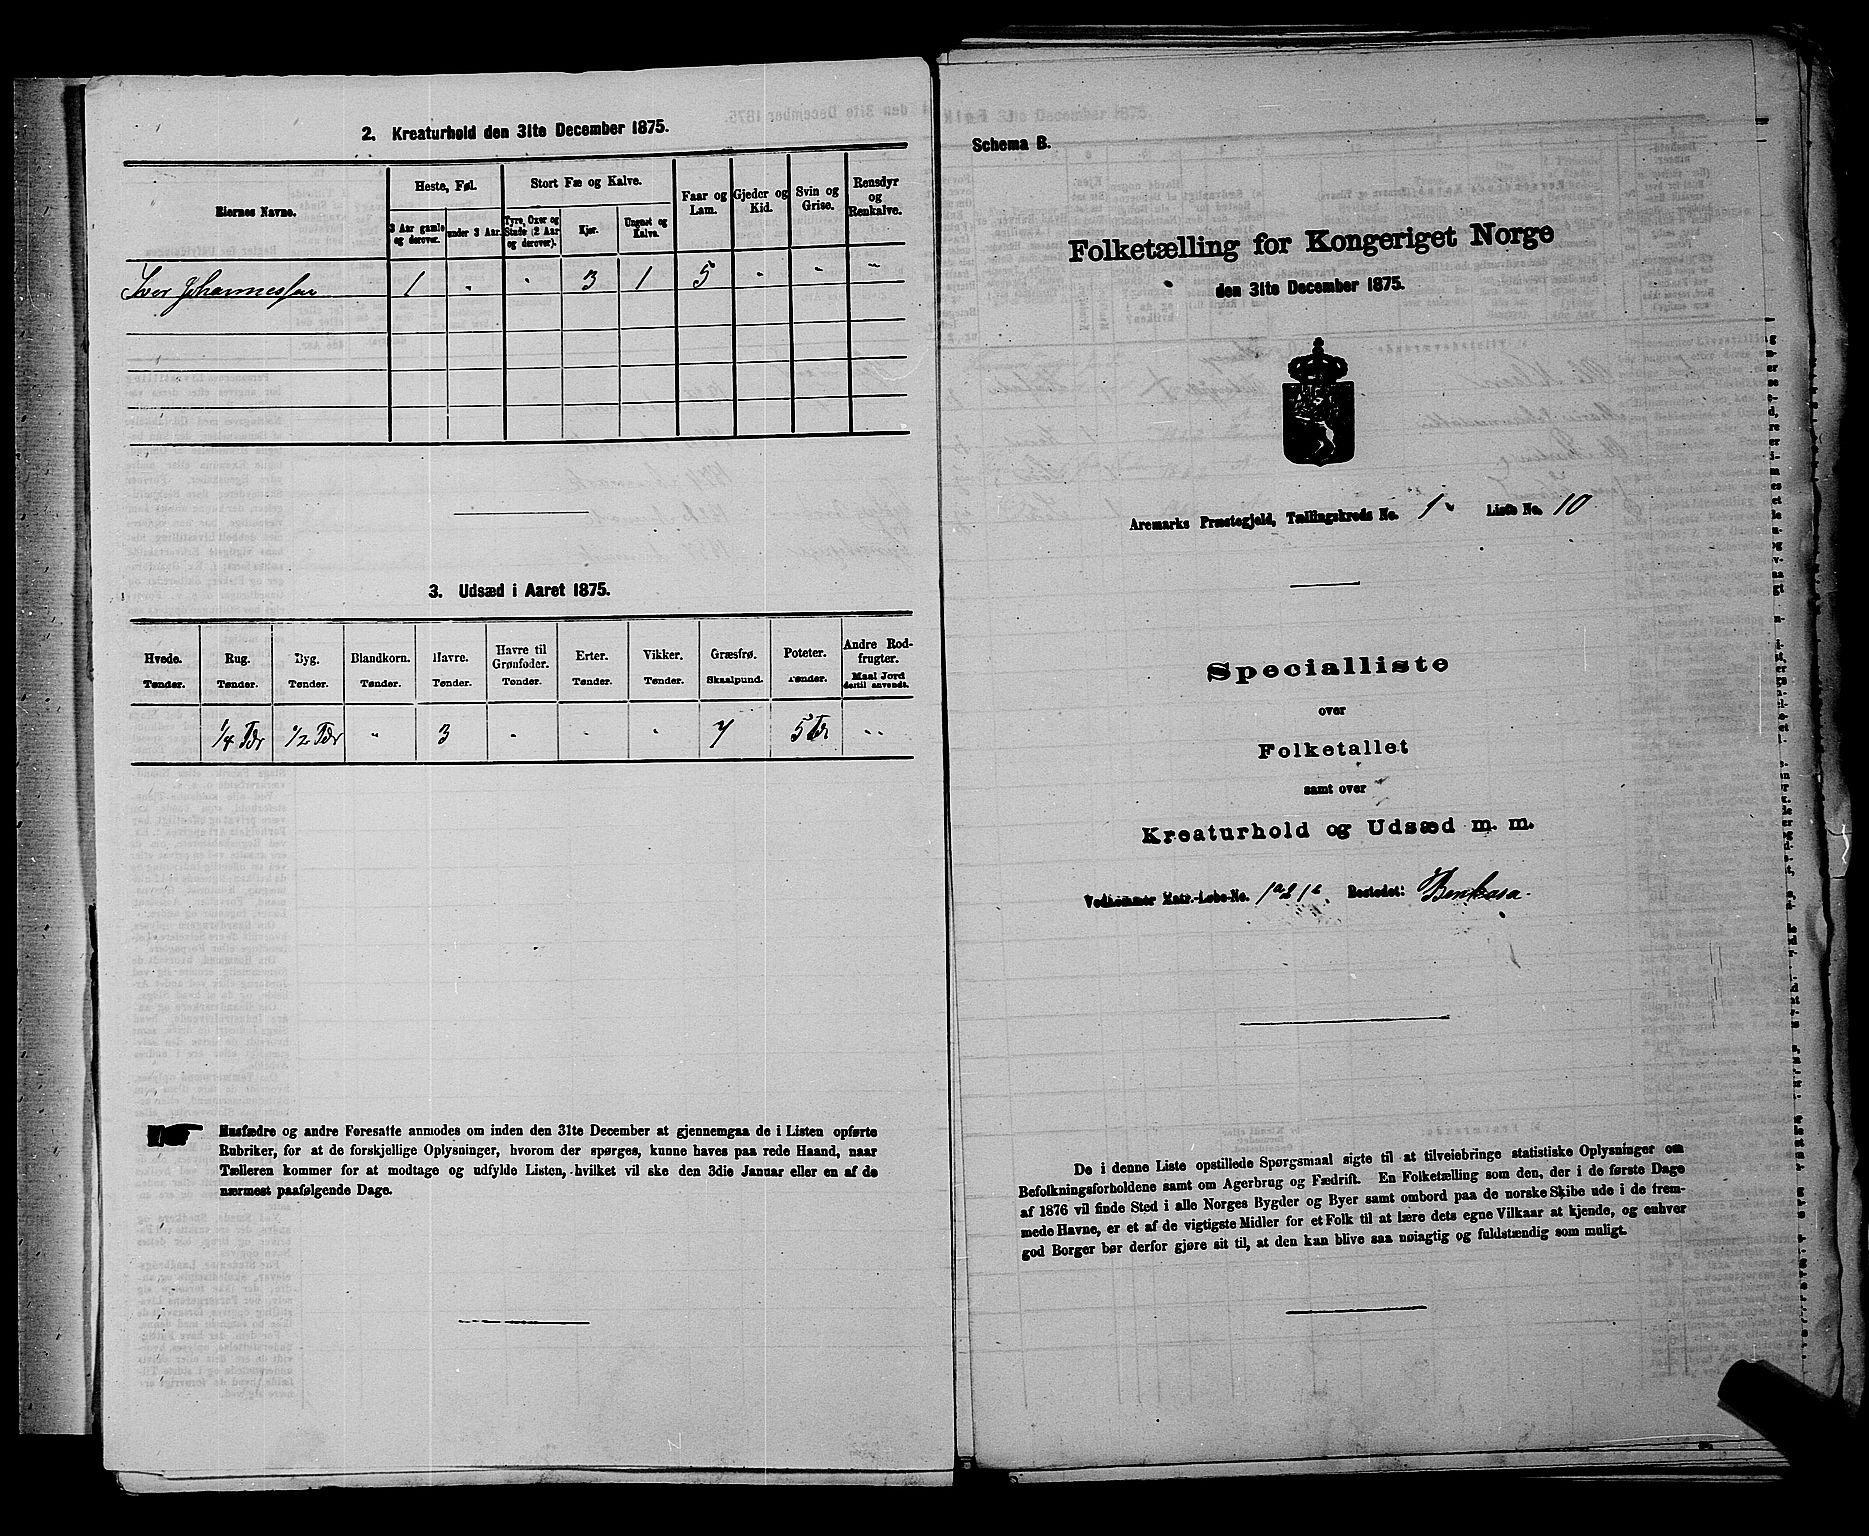 2. Kreaturhold den 31te December 1875.
Eiernes Navne.
Heste, Føl.
Stort Fæ og Kalve.
Faar og Lam.
Gjeder og Kid.
Svin og Grise.
Rensdyr og Renkalve.
3 Aar gamle og derover.
under 3 Aar.
Tyre, Oxer og Stude (2 Aar og derover).
Kjør.
Ungnøt og Kalve.
Iver Johannessen 1 " " 3 1 5 " " "
3. Udsæd i Aaret 1875.
Hvede. Rug. Byg. Blandkorn. Havre. Havre til Grønfoder. Erter. Vikker. Græsfrø. Poteter. Andre Rodfrugter.
Tønder. Tønder. Tønder. Tønder. Tønder. Tønder. Tønder. Tønder. Skaalpund. Tønder. Maal Jord dertil anvendt.
1/4 Tdr 1/2 Tdr " 3 " " " 7 5 Tdr "
Husfædre og andre Foresatte anmodes om inden den 31te December at gjennemgaa de i Listen opførte
Rubriker, for at de forskjellige Oplysninger, hvorom der spørges, kunne haves paa rede Haand, naar
Tælleren kommer for at modtage og udfylde Listen, hvilket vil ske den 3die Januar eller en af de
nærmest paafølgende Dage.
Schema B.
Folketælling for Kongeriget Norge
den 31te December 1875.
Aremarks Præstegjeld, Tællingskreds No. 1 Liste No. 10
Specialliste
over
Folketallet
samt over
Kreaturhold og Udsæd m. m.
Vedkommer Matr.-Løbe-No. Bostedet:
De i denne Liste opstillede Spørgsmaal sigte til at tilveiebringe statistiske Oplysninger om
Befolkningsforholdene samt om Agerbrug og Fædrift. En Folketælling som den, der i de første Dage
af 1876 vil finde Sted i alle Norges Bygder og Byer samt ombord paa de norske Skibe ude i de frem-
mede Havne, er et af de vigtigste Midler for et Folk til at lære dets egne Vilkaar at kjende, og enhver
god Borger bør derfor gjøre sit til, at den kan blive saa nøiagtig og fuldstændig som muligt.